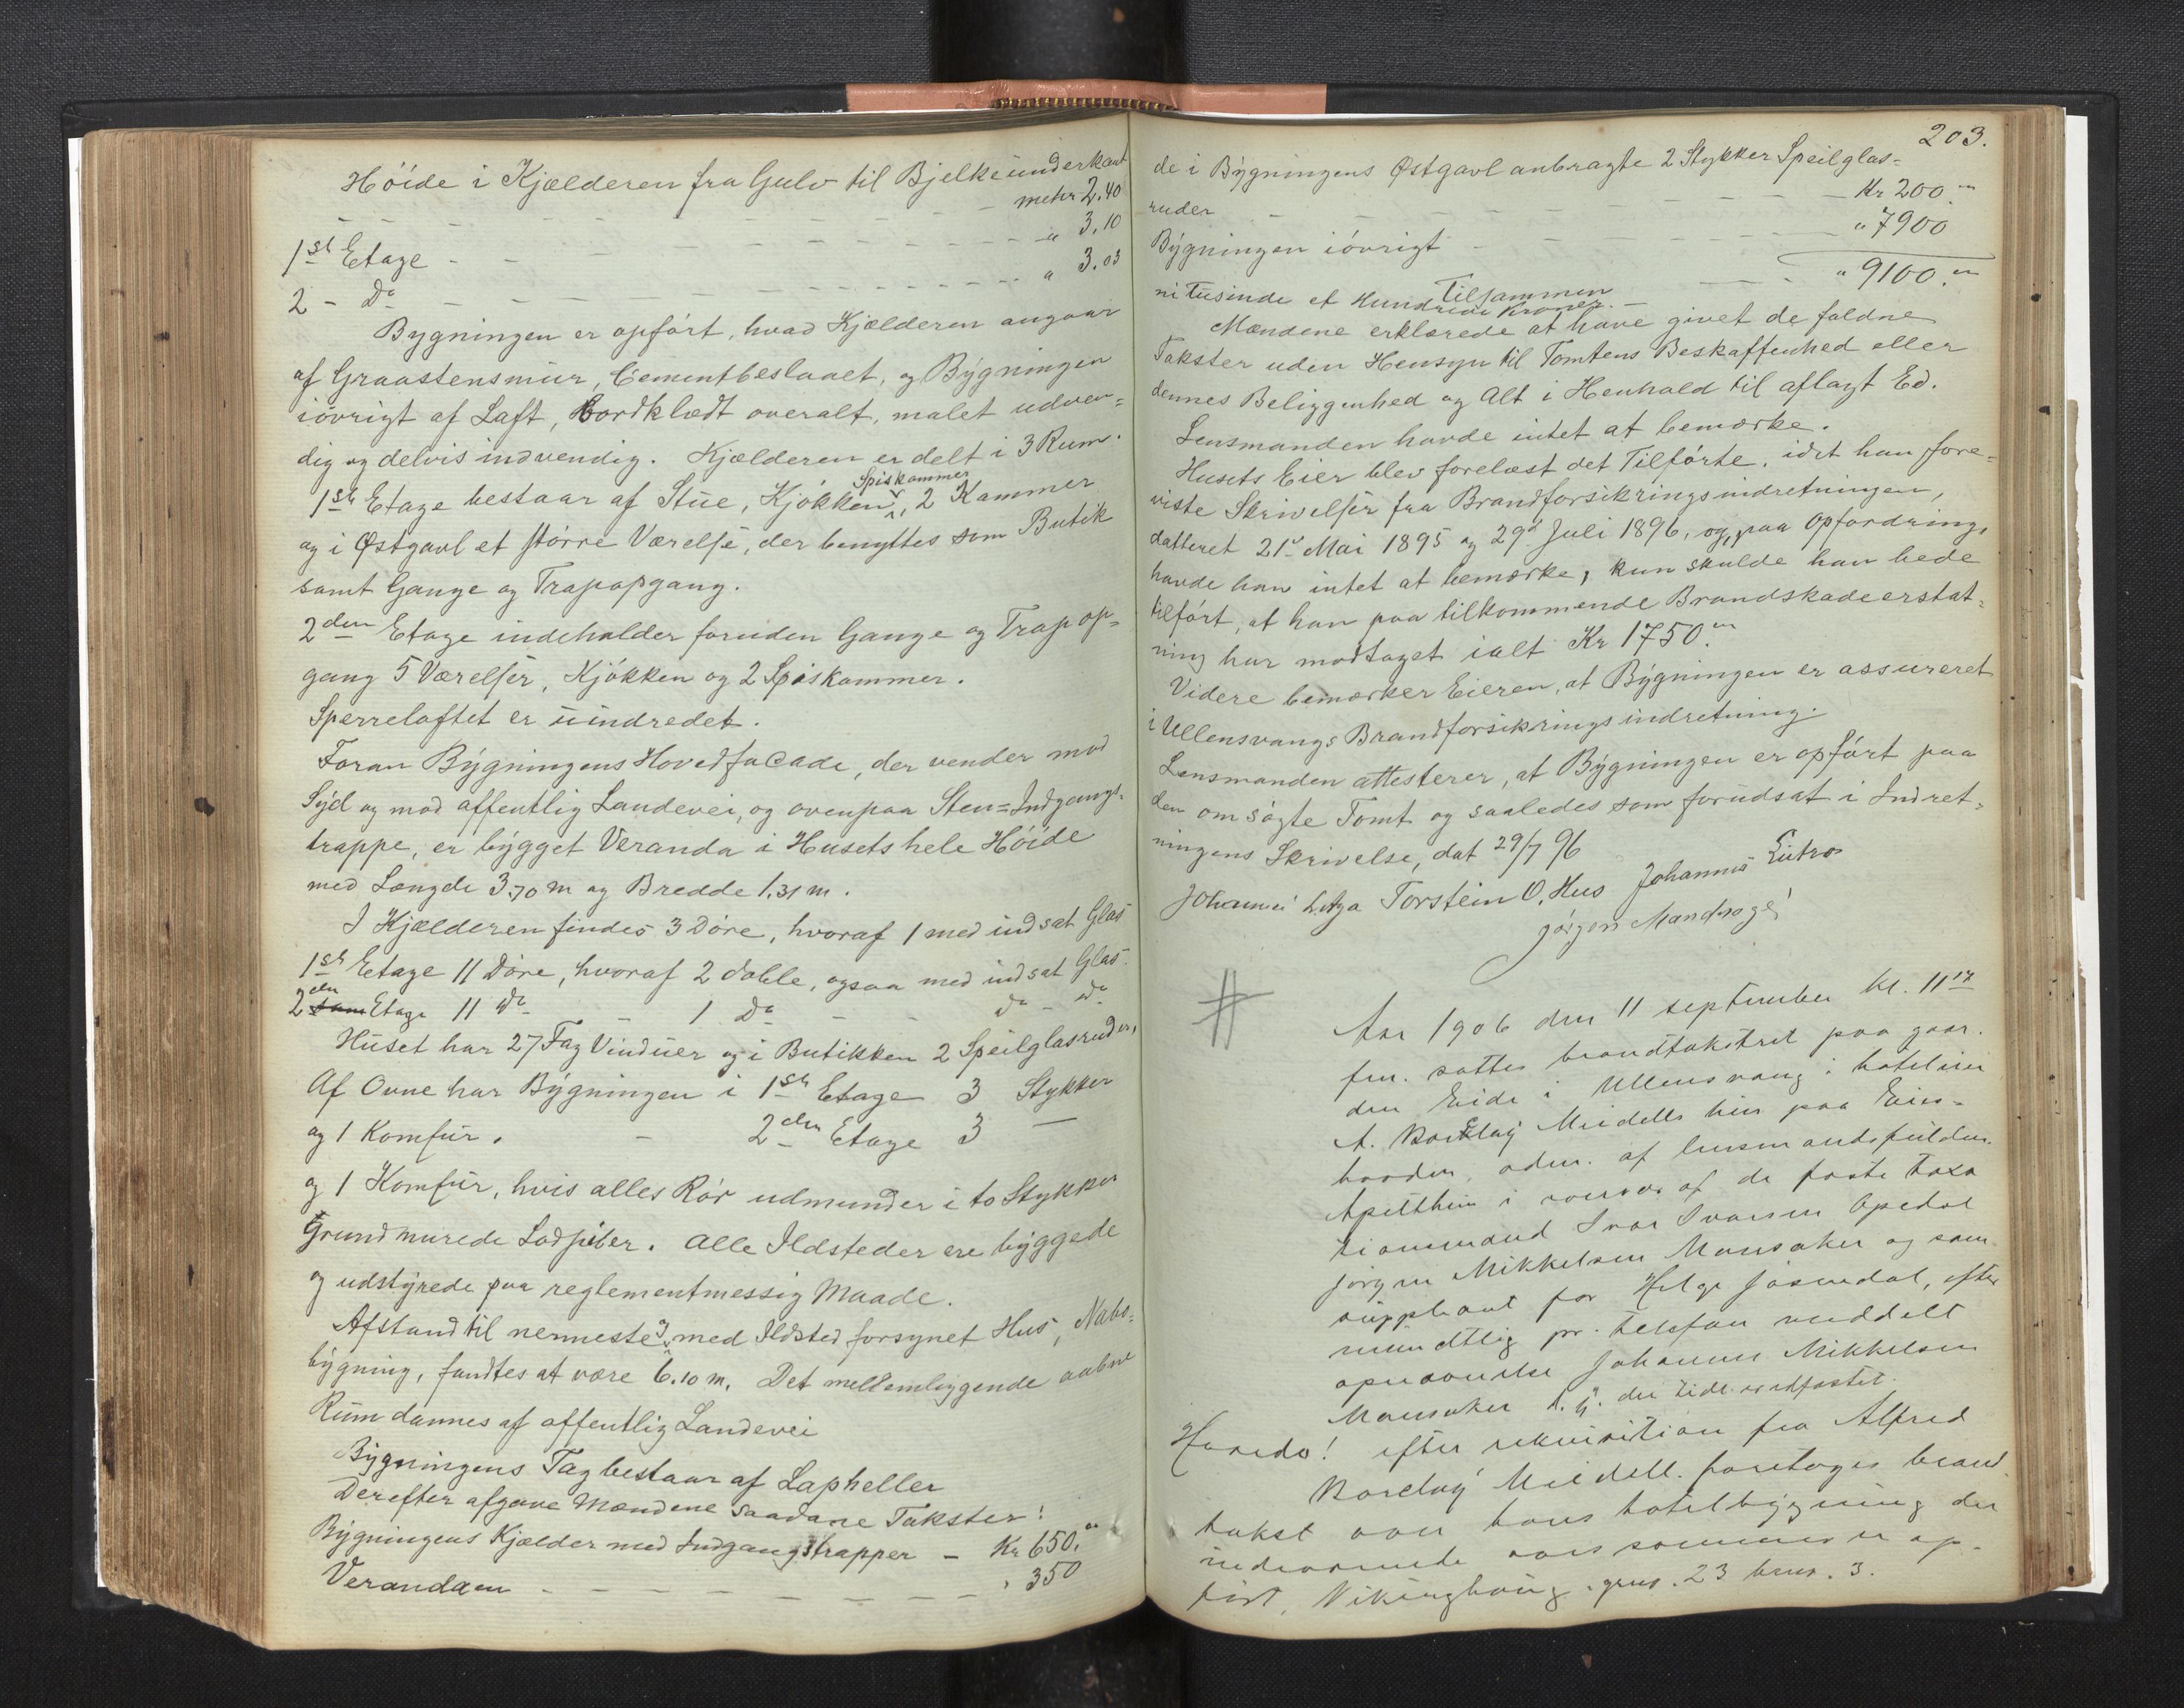 Høide i Kjælderen fra Gulv til Bjelkeunderkant
meter 2.40
1ste Etage - - - - - - - " 3.10
2 - Do - - - - - - - " 3.03
Bygningen er opført, hvad Kjælderen angaar
af Graastensmur, Cementbeslaaet, og Bygningen
iøvrigt af Laft, Bordklædt overalt, malet udven=
dig og delvis indvendig. Kjælderen er delt i 3 Rum.
1ste Etage bestaar af Stue, Kjøkken, Spiskammer, 2 Kammer
og i Østgavl et større Værelse, der benyttes som Butik
samt Gange og Trapopgang.
2den Etage indeholder foruden Gange og Trapop=
gang 5 Værelser, Kjøkken og 2 Spiskammer.
Sperreloftet er uindredet.
Foran Bygningens Hovedfacade, der vender mod
Syd og mod offentlig Landevei, og ovenpaa Sten=Indgangs=
trappe, er bygget Veranda i Husets hele Høide
med Længde 3.70 m og Bredde 1.31 m.
I Kjælderen findes 3 Døre, hvoraf 1 med indsat Glas
1ste Etage 11 Døre, hvoraf 2 doble, ogsaa med indsat Glas.
2den Etage 11 Do - 1 Do - - Do - Do
Huset har 27 Fag Vinduer og i Butikken 2 Speilglasruder,
Af Ovne har Bygningen i 1ste Etage 3 Stykker
og 1 Komfur. - 2den Etage 3 —
og 1 Komfur, hvis alles Rør udmunder i to Stykker
Grundmurede Lodpiber. Alle Ildsteder ere byggede
og udstyrede paa reglementmessig Maade.
Afstand til nermeste, med Ildsted forsynet Hus, Nabo=
bygning, fandtes at være 6.10 m. Det mellemliggende aabne
Rum dannes af offentlig Landevei
Bygningens Tag bestaar af Lapheller
Derefter afgave Mændene saadane Takster:
Bygningens Kjælder med Indgangstrapper - Kr 650.
Verandaen - - - - - - - " 350
203.
de i Bygningens Østgavl anbragte 2 Stykker Speilglas=
ruder - - - - - - - Kr 200.
Bygningen iøvrigt - - - - - " 7900
Tilsammen - - - " 9100.
ni tusinde et Hundrede Kroner. -
Mændene erklærede at have givet de faldne
Takster uden Hensyn til Tomtens Beskaffenhed eller
dennes Beliggenhed og Alt i Henhold til aflagt Ed.
Lensmanden havde intet at bemærke.
Husets Eier blev forelæst det Tilførte, idet han fore=
viste Skrivelser fra Brandforsikringsindretningen,
datteret 21de Mai 1895 og 29de Juli 1896, og, paa Opfordring,
havde han intet at bemærke, kun skulde han bede
tilført, at han paa tilkommende Brandskadeerstat=
ning har modtaget ialt Kr 1750.
Videre bemærker Eieren, at Bygningen er assureret
i Ullensvangs Brandforsikringsindretning.
Lensmanden attesterer, at Bygningen er opført paa
den omsøgte Tomt og saaledes som forudsat i Indret=
ningens Skrivelse, dat 29/7 96
Torstein O. Hus Johannes
Jørgen
Aar 1906 den 11 september kl. 11
fm. sattes brandtakstret paa gaar.
den Eide i Ullensvang i hoteleier
A. Barklay Meidells hus paa Eins-
 af lensmandsfuldm.
Apeltun i af de faste taxa
tionsmænd Ivar Ivarsen Opedal
Jørgen Mikkelsen Mausaker og som
suppleant for Helge Jåsendal, efter
mundtlig pr. telefon meddelt
opnævnelse Johannes Mikkelsen
Mausaker
Hvorda! efter rekvisition fra Alfred
Barclay Meidell foretoges brand
takst over hans hotelbygning der
indeværende aars sommer er op-
ført, Vikinghaug, grno. 23 brno. 3.